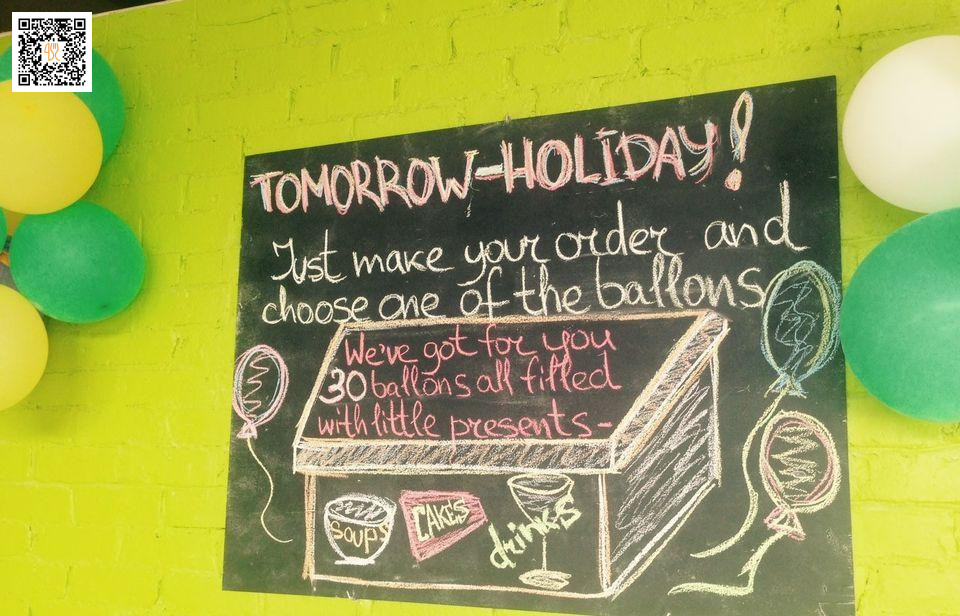 TOMORROW-HOLIDAY!
Just make your order and
choose one of the ballons
We've got for you
30 ballons all filled
with little presents-
SOUPS
CAKES
drinks